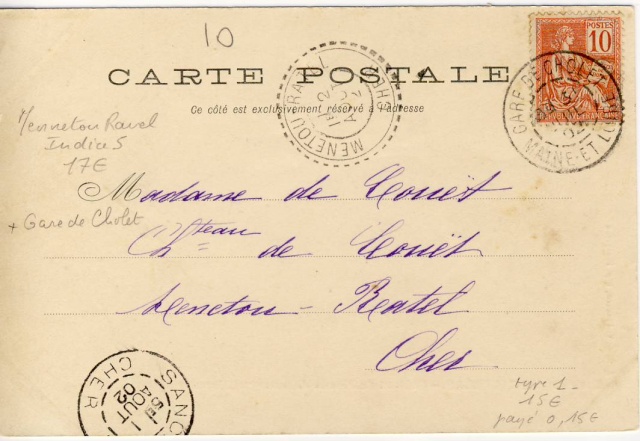 10
POSTES
10
RÉPUBLIQUE FRANÇAISE
CARTE POSTALE
Ce côté est exclusivement réservé à l'adresse
MENETOU-RATEL
CHER
GARE DE CHOLET
MAINE-ET-LOIRE
Mennetou Ravel
Indice 5
17€
+ Gare de Cholet
Madame de Couët
Ch.teau de Couët
Menetou-Ratel
Cher
SANC
CHER
5E
4
AOUT
02
type 1
15€
payé 0,15€